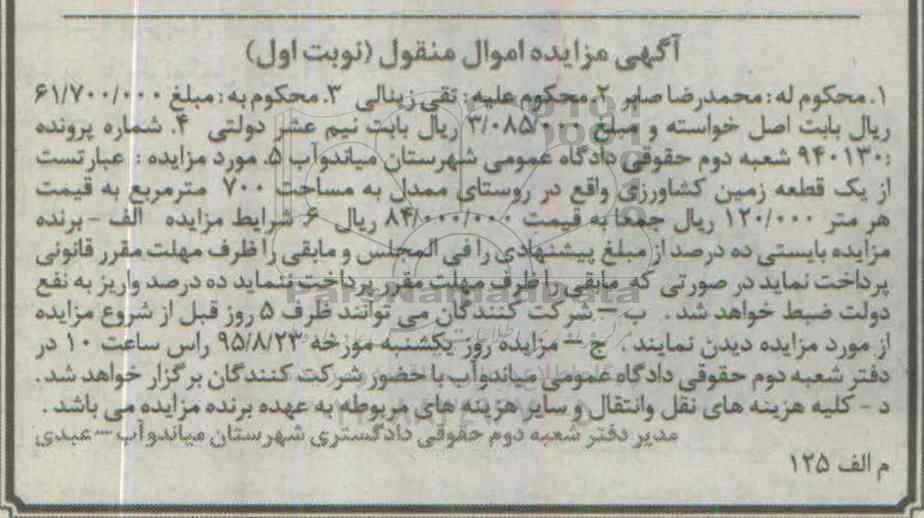 آگهی مزایده اموال منقول (نوبت اول)
۱. محکوم له: محمدرضا صابر ۲. محکوم علیه: تقی زینالی ۳. محکوم به: مبلغ ۶۱/۷۰۰/۰۰۰
ریال بابت اصل خواسته و مبلغ ۳/۰۸۵/۰۰۰ ریال بابت نیم عشر دولتی ۴. شماره پرونده
:۹۴۰۱۳۰ شعبه دوم حقوقی دادگاه عمومی شهرستان میاندوآب ۵. مورد مزایده: عبارتست
از یک قطعه زمین کشاورزی واقع در روستای ممدل به مساحت ۷۰۰ مترمربع به قیمت
هر متر ۱۲۰/۰۰۰ ریال جمعا به قیمت ۸۴/۰۰۰/۰۰۰ ریال ۶. شرایط مزایده الف - برنده
مزایده بایستی ده درصد از مبلغ پیشنهادی را فی المجلس و مابقی را ظرف مهلت مقرر قانونی
پرداخت نماید در صورتی که مابقی را ظرف مهلت مقرر پرداخت ننماید ده درصد واریز به نفع
دولت ضبط خواهد شد. ب - شرکت کنندگان می توانند ظرف ۵ روز قبل از شروع مزایده
از مورد مزایده دیدن نمایند. ج - مزایده روز یکشنبه مورخه ۹۵/۸/۲۳ راس ساعت ۱۰ در
دفتر شعبه دوم حقوقی دادگاه عمومی میاندوآب با حضور شرکت کنندگان برگزار خواهد شد.
د - کلیه هزینه های نقل وانتقال و سایر هزینه های مربوطه به عهده برنده مزایده می باشد.
مدیر دفتر شعبه دوم حقوقی دادگستری شهرستان میاندوآب - عبدی
م الف ۱۲۵
ParsNamadData